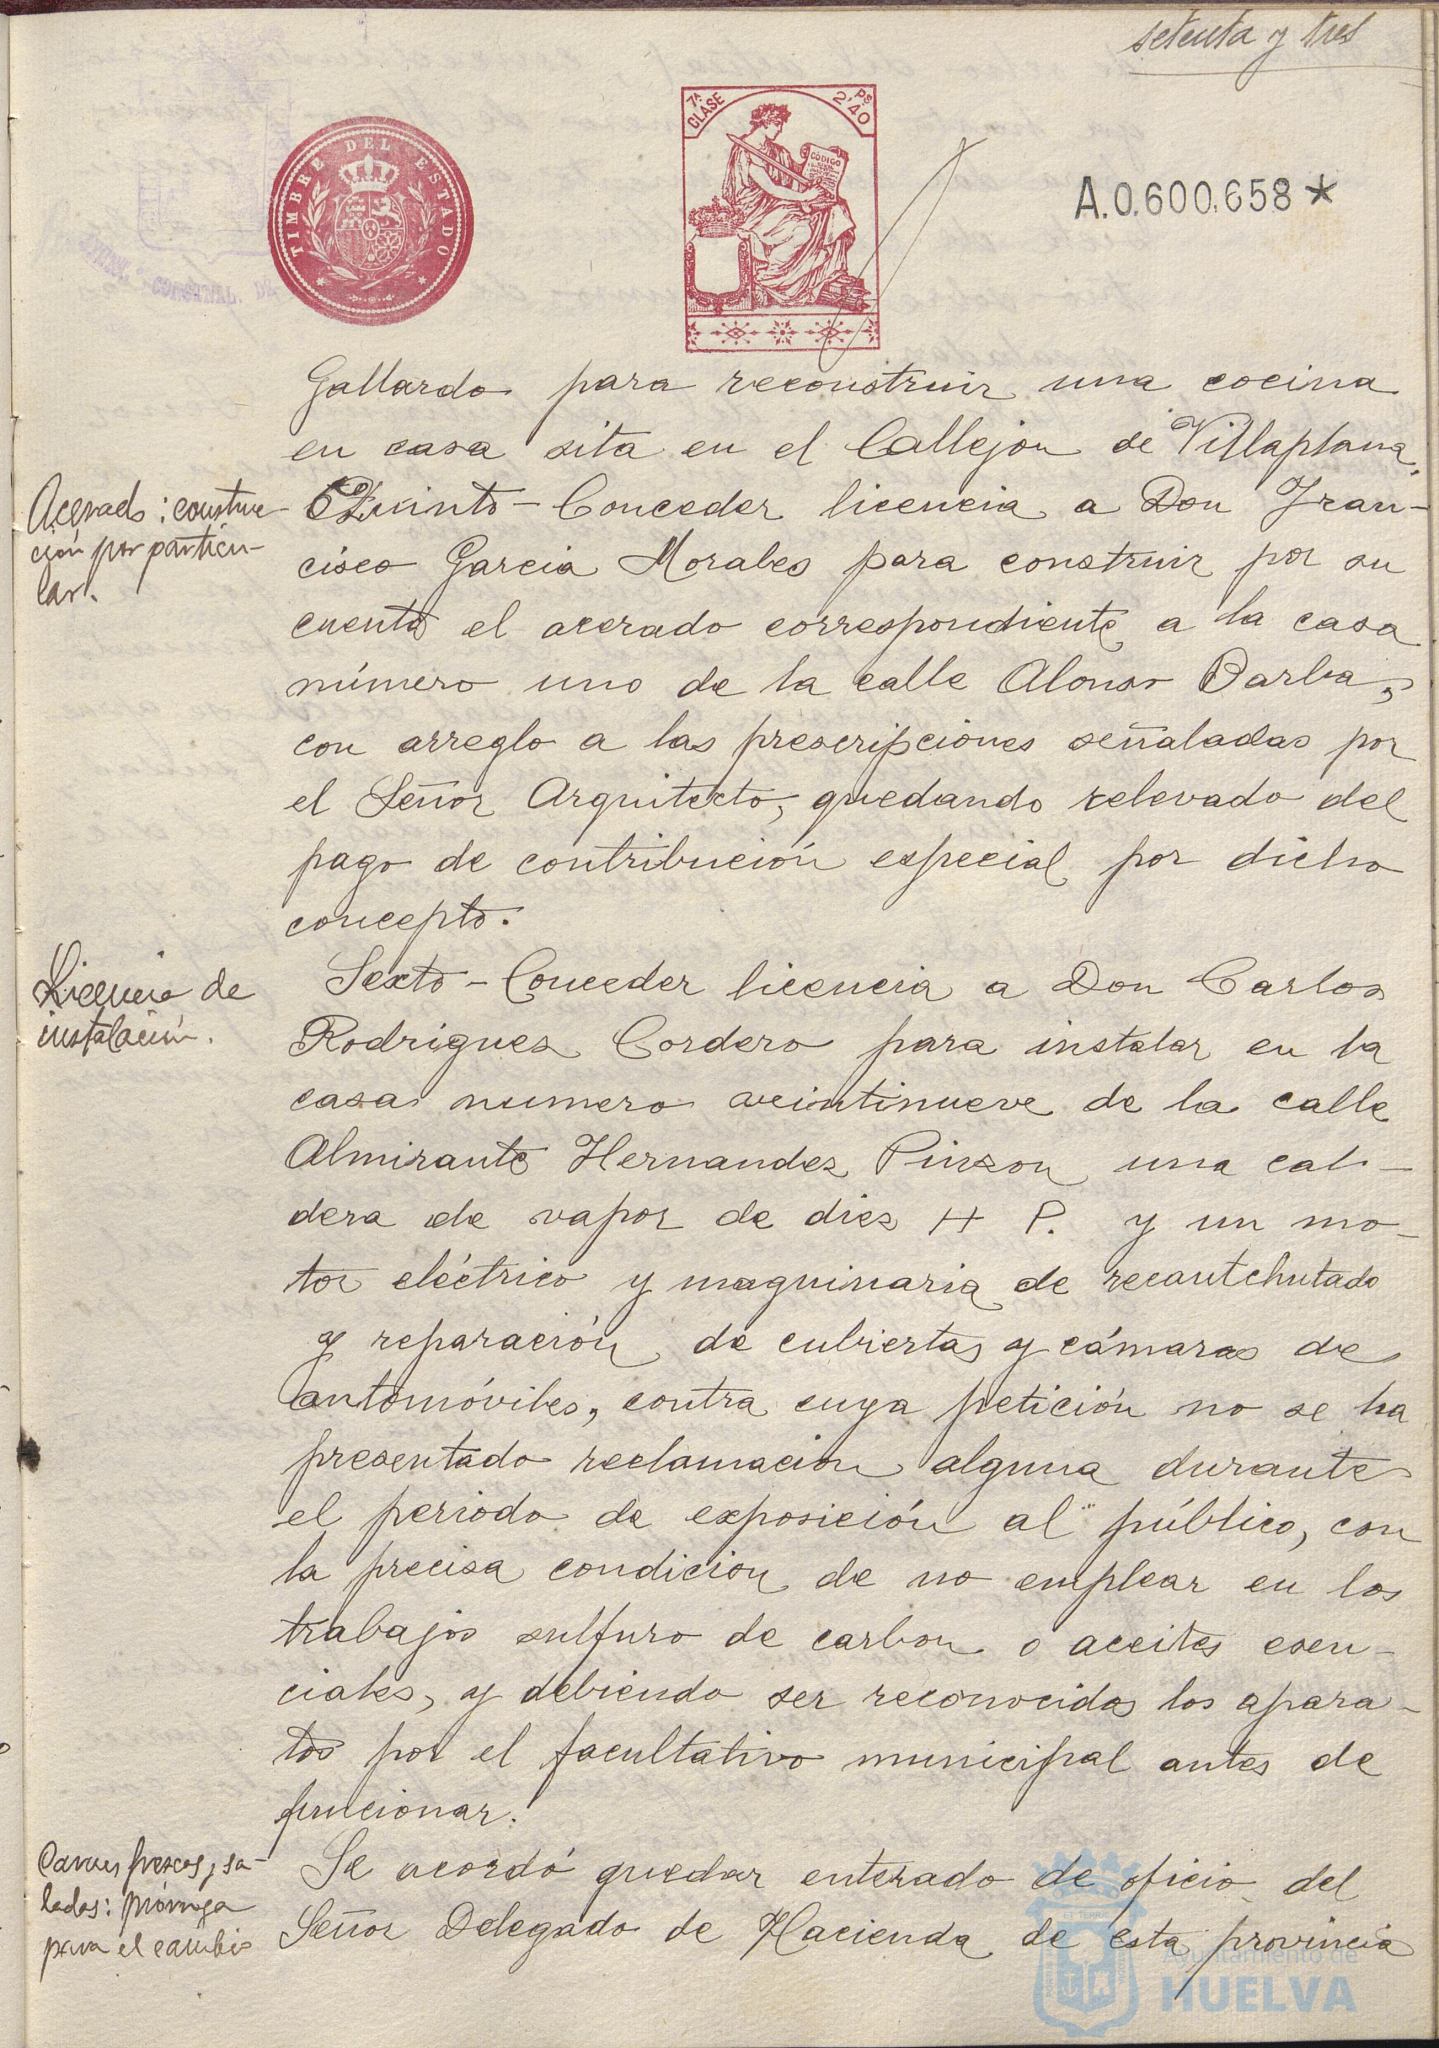 setenta y tres
TIMBRE DEL ESTADO
7ª CLASE
2'40 PS
CÓDIGO
A.0.600.658*
CONSTNAL. DE
Gallardo para reconstruir una cocina
en casa sita en el Callejon de Villaplana.
Acerado: construc-
ción por particu-
lar.
Quinto - Conceder licencia a Don Fran-
cisco Garcia Morales para construir por su
cuenta el acerado correspondiente a la casa
número uno de la calle Alonso Barba,
con arreglo a las prescripciones señaladas por
el Señor Arquitecto, quedando relevado del
pago de contribución especial por dicho
concepto.
Licencia de
instalación.
Sexto - Conceder licencia a Don Carlos
Rodriguez Cordero para instalar en la
casa numero veintinueve de la calle
Almirante Hernandez Pinzon una cal-
dera de vapor de diez H P. y un mo-
tor eléctrico y maquinaria de recautchutado
y reparación de cubiertas y cámaras de
automóviles, contra cuya petición no se ha
presentado reclamacion alguna durante
el periodo de exposición al público, con
la precisa condicion de no emplear en los
trabajos sulfuro de carbon o aceites esen-
ciales, y debiendo ser reconocidos los apara-
tos por el facultativo municipal antes de
funcionar.
Carnes frescas y sa-
ladas: prórroga
para el cambio
Se acordó quedar enterado de oficio del
Señor Delegado de Hacienda de esta provincia
Ayuntamiento de
HUELVA